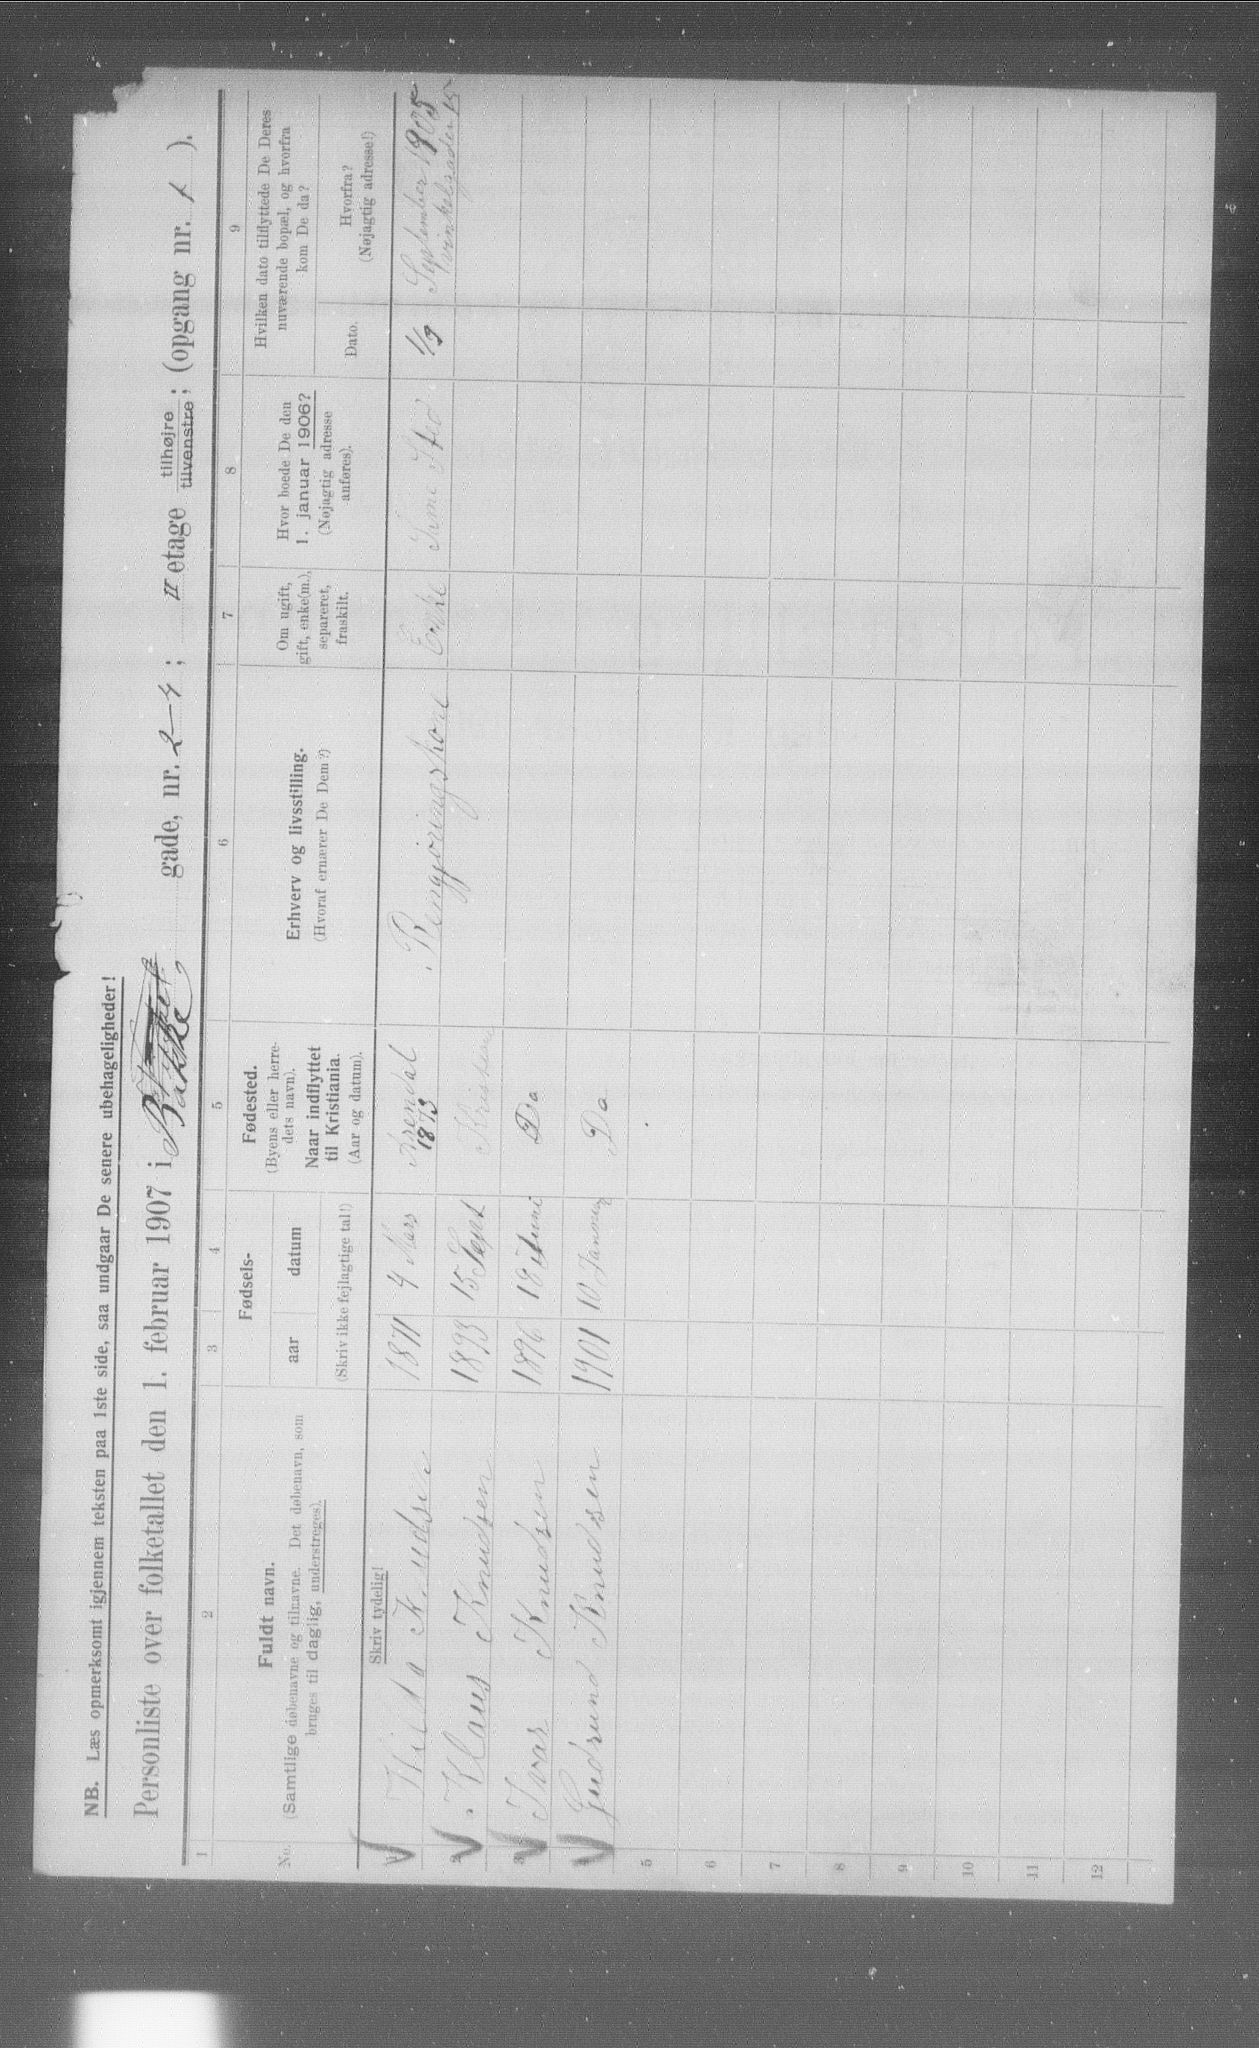 NB. Læs opmerksomt igjennem teksten paa 1ste side, saa undgaar De senere ubehageligheder!
Personliste over folketallet den 1. februar 1907 i Bakke gade, nr. 2-4; II etage tilhøjre tilvenstre; (opgang nr. 1 ).
1 2 3 4 5 6 7 8 9
No.
Fuldt navn.
(Samtlige døbenavne og tilnavne. Det døbenavn, som
bruges til daglig, understreges).
Skriv tydelig!
Fødsels-
aar datum
(Skriv ikke fejlagtige tal!)
Fødested.
(Byens eller herre-
dets navn).
Naar indflyttet
til Kristiania.
(Aar og datum).
Erhverv og livsstilling.
(Hvoraf ernærer De Dem?)
Om ugift,
gift, enke(m.),
separeret,
fraskilt.
Hvor boede De den
1. januar 1906?
(Nøjagtig adresse
anføres).
Hvilken dato tilflyttede De Deres
nuværende bopæl, og hvorfra
kom De da?
Dato.
Hvorfra?
(Nøjagtig adresse!)
1 Hilda Knudsen 1871 4 Mars Arendal 1893 Rengjøringskone Enke Same Sted 1/9 September 1905
2 Klaus Knudsen 1893 15 Sept
3 Ivar Knudsen 1896 18 Juni Do
4 Gudrund Knudsen 1901 10 Januar Do
5
6
7
8
9
10
11
12